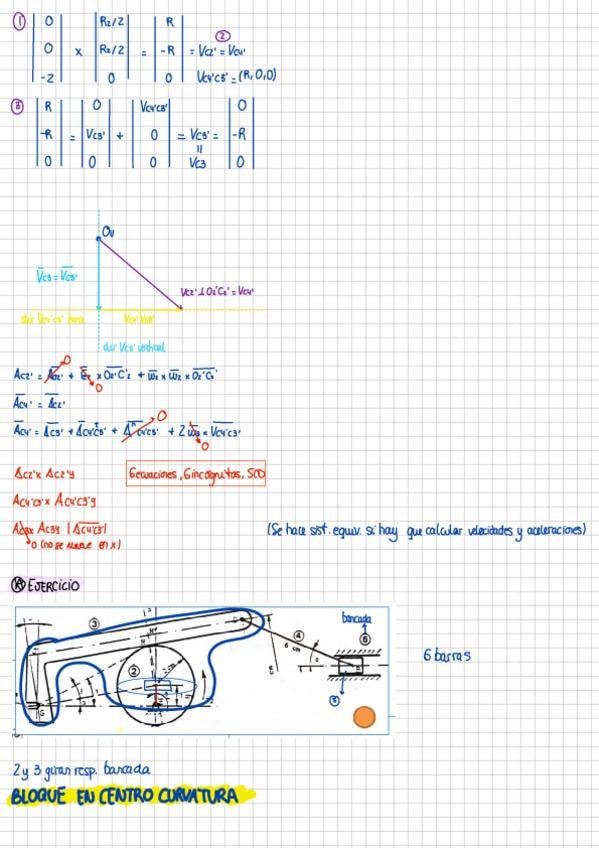 ① | 0 | | R₂/2 | | R | ②
| 0 | x | R₂/2 | = | -R | = Vc2' = Vc4'
| -2 | | 0 | | 0 | Vc4'c3' = (R, 0, 0)
③ | R | | 0 | | Vc4'c3' | | 0 |
| -R | = | Vc3' | + | 0 | = Vc3' = | -R |
| 0 | | 0 | | 0 | Vc3 | 0 |
Ov
V̄c3 = V̄c3'
Vc2' ⊥ O2'C2' = Vc4'
dir Vc4'c3' horiz
Vc4'c3'
dir Vc3' vertical
Ac2' = Ao2' + ε2 x O2'C'2 + ω2 x ω2 x O2'C2'
0
0
Ac4' = Ac2'
Ac4' = Ac3' + Aᵗc4'c3' + Aⁿc4'c3' + 2ω3 x Vc4'c3'
0
0
Ac2'x Ac2'y
6 ecuaciones, 6 incognitas, SCD
Ac4'c3'x Ac4'c3'y
Ac3x Ac3y |Ac4'c3'|
0 (no se mueve en x)
(Se hace sist. equiv. si hay que calcular velocidades y aceleraciones)
Ⓡ EJERCICIO
③
②
④
6 cm
bancada
⑥
⑤
6 barras
2 y 3 giran resp. bancada
BLOQUE EN CENTRO CURVATURA